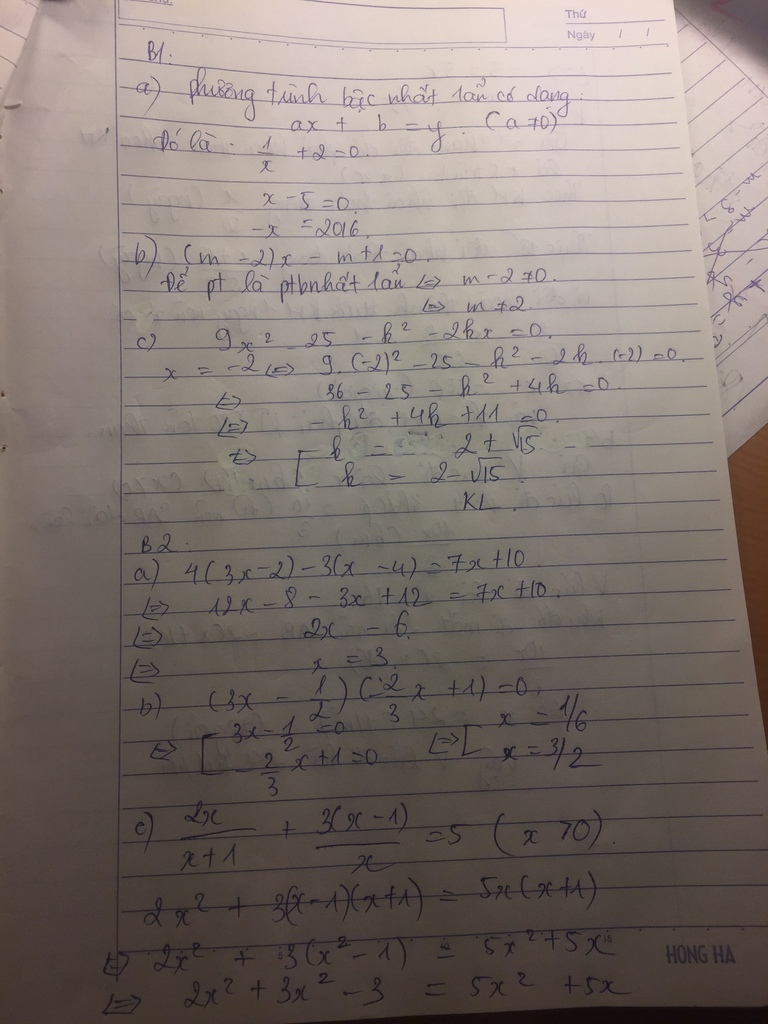 Thứ
Ngày / /
B1:
a) phương trình bậc nhất 1 ẩn có dạng:
ax + b = y. (a ≠ 0)
Đó là: 1/x + 2 = 0.
x - 5 = 0.
-x = 2016.
b) (m - 2)x - m + 1 = 0.
Để pt là ptbnhất 1 ẩn <=> m - 2 ≠ 0.
<=> m ≠ 2.
c) 9x² - 25 - k² - 2kx = 0.
x = -2 <=> 9.(-2)² - 25 - k² - 2k.(-2) = 0.
<=> 36 - 25 - k² + 4k = 0.
<=> - k² + 4k + 11 = 0.
<=> [ k = 2 + √15
k = 2 - √15
KL.
B2:
a) 4(3x - 2) - 3(x - 4) = 7x + 10.
<=> 12x - 8 - 3x + 12 = 7x + 10.
<=> 2x = 6.
<=> x = 3.
b) (3x - 1/2)(-2/3 x + 1) = 0.
<=> [ 3x - 1/2 = 0 <=> [ x = 1/6
- 2/3 x + 1 = 0 x = 3/2
c) 2x/(x + 1) + 3(x - 1)/x = 5 (x ≠ 0).
2x² + 3(x - 1)(x + 1) = 5x(x + 1)
<=> 2x² + 3(x² - 1) = 5x² + 5x
HONG HA
<=> 2x² + 3x² - 3 = 5x² + 5x